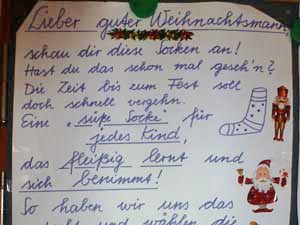 Lieber guter Weihnachtsmann,
schau dir diese Socken an!
Hast du das schon mal geseh'n?
Die Zeit bis zum Fest soll
doch schnell vergehn.
Eine "süße Socke" für
jedes Kind,
das fleißig lernt und
sich benimmt!
So haben wir uns das
und wählen die